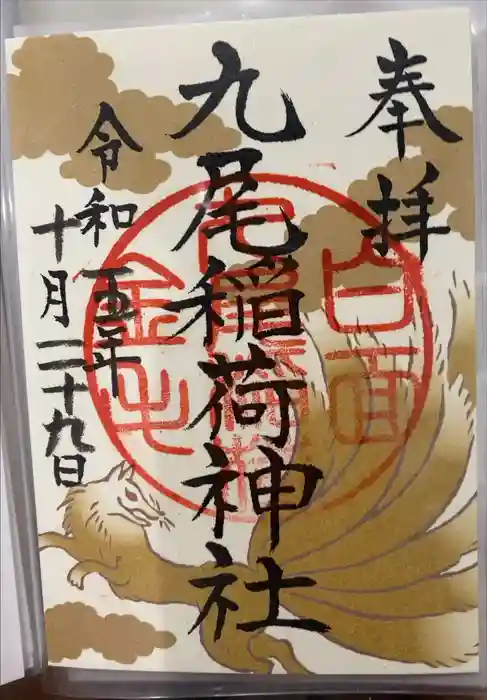 奉拝
九尾稲荷神社
令和五年
十月二十九日
白面
金毛